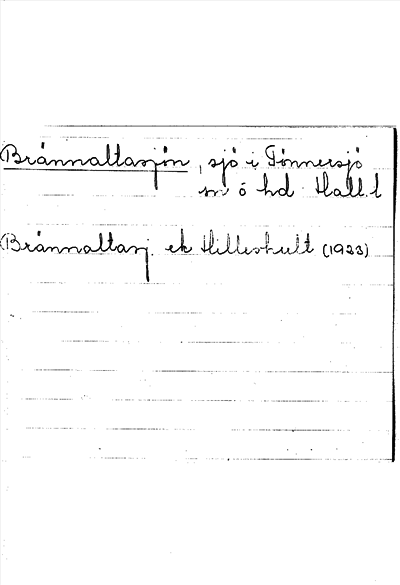 Brännaltasjön, sjö i Tönnersjö
sn ö hd Hall. l
Brännaltasj. ek Hilleshult (1923)